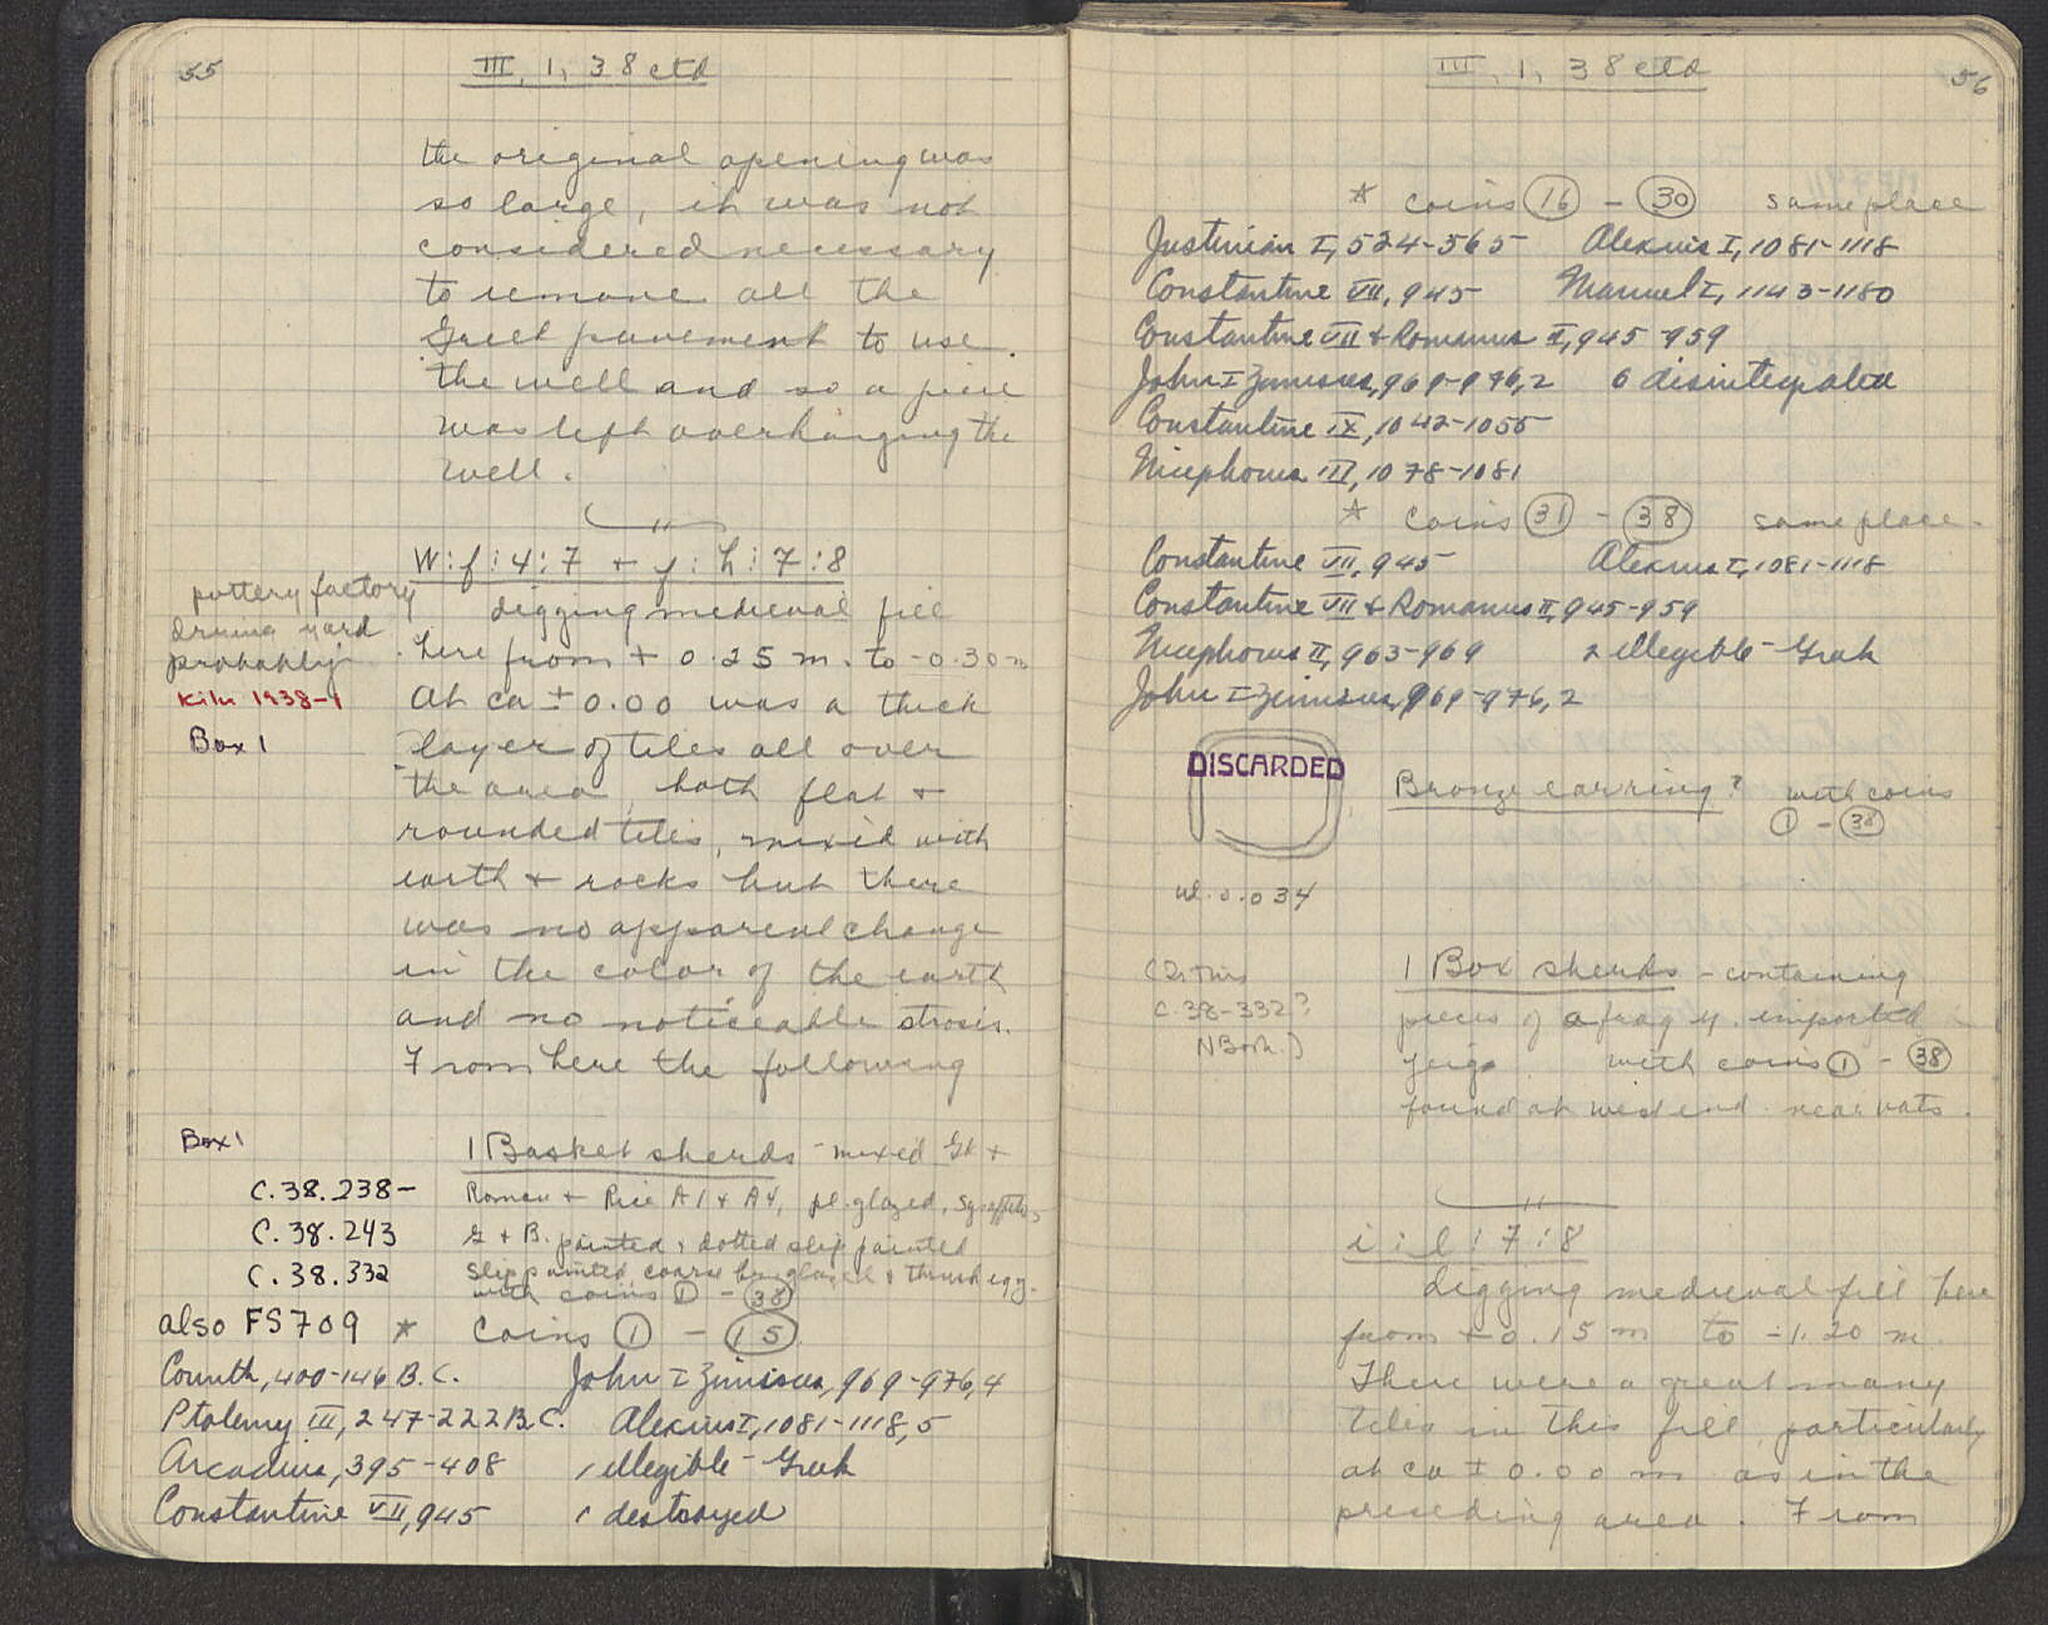 55
III, 1, 38 ctd
the original opening was
so large, it was not
considered necessary
to remove all the
Greek pavement to use
the well and so a piece
was left overhanging the
well.
W:f:4:7 + y:h:7:8
pottery factory
drying yard
probably
Kiln 1938-1
Box 1
digging medieval fill
here from + 0.25 m. to -0.30 m
At ca ± 0.00 was a thick
layer of tiles all over
the area, both flat +
rounded tiles, mixed with
earth + rocks but there
was no apparent change
in the color of the earth
and no noticeable strosis.
From here the following
Box 1
1 Basket sherds - mixed Gk +
C.38.238-
Roman + Rice A1 + A4, pl. glazed, Sgraffito,
C.38.243
G + B. painted, dotted slip painted
C.38.332
Slip painted, coarse glazed +
with coins 1 - 38
also FS709 * Coins 1 - 15
Corinth, 400-146 B.C.
John I Zimisces, 969-976, 4
Ptolemy III, 247-222 B.C.
Alexius I, 1081-1118, 5
Arcadius, 395-408
1 illegible - Greek
Constantine VII, 945
1 destroyed
56
III, 1, 38 ctd
* coins 16 - 30 same place
Justinian I, 524-565
Alexius I, 1081-1118
Constantine VII, 945
Manuel I, 1143-1180
Constantine VII + Romanus II, 945-959
John I Zimisces, 969-976, 2
6 disintegrated
Constantine IX, 1042-1055
Nicephorus III, 1078-1081
* coins 31 - 38 same place.
Constantine VII, 945
Alexius I, 1081-1118
Constantine VII & Romanus II, 945-959
Nicephorus II, 963-969
2 illegible - Greek
John I Zimisces, 969-976, 2
DISCARDED
Bronze earring? with coins
1 - 38
W. 0.034
(Is this
C.38-332?
NBook.)
1 Box sherds - containing
pieces of a frag y. imported
with coins 1 - 38
found at west end near vats.
i:l:7:8
digging medieval fill here
from + 0.15 m to -1.20 m.
There were a great many
tiles in this fill, particularly
at ca ± 0.00 m as in the
preceding area. From